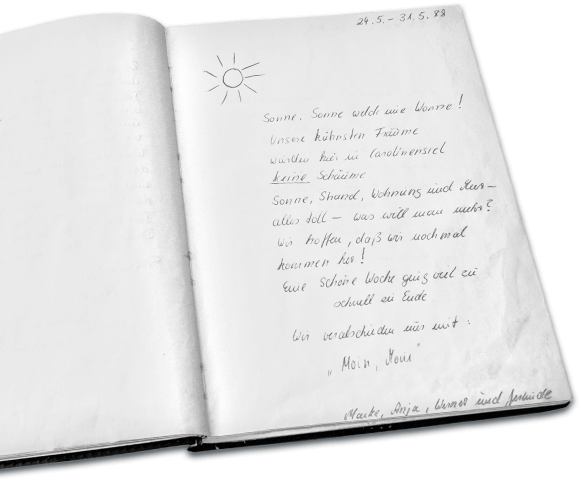 24.5. – 31.5. 88
Sonne, Sonne welch eine Wonne!
Unsere kühnsten Träume
wurden hier in Carolinensiel
keine Schäume
Sonne, Strand, Wohnung und Meer –
alles toll – was will man mehr?
Wir hoffen, daß wir nochmal
kommen her!
Eine schöne Woche ging viel zu
schnell zu Ende
Wir verabschieden uns mit:
„Moin, Moin"
Maike, Anja, Werner und